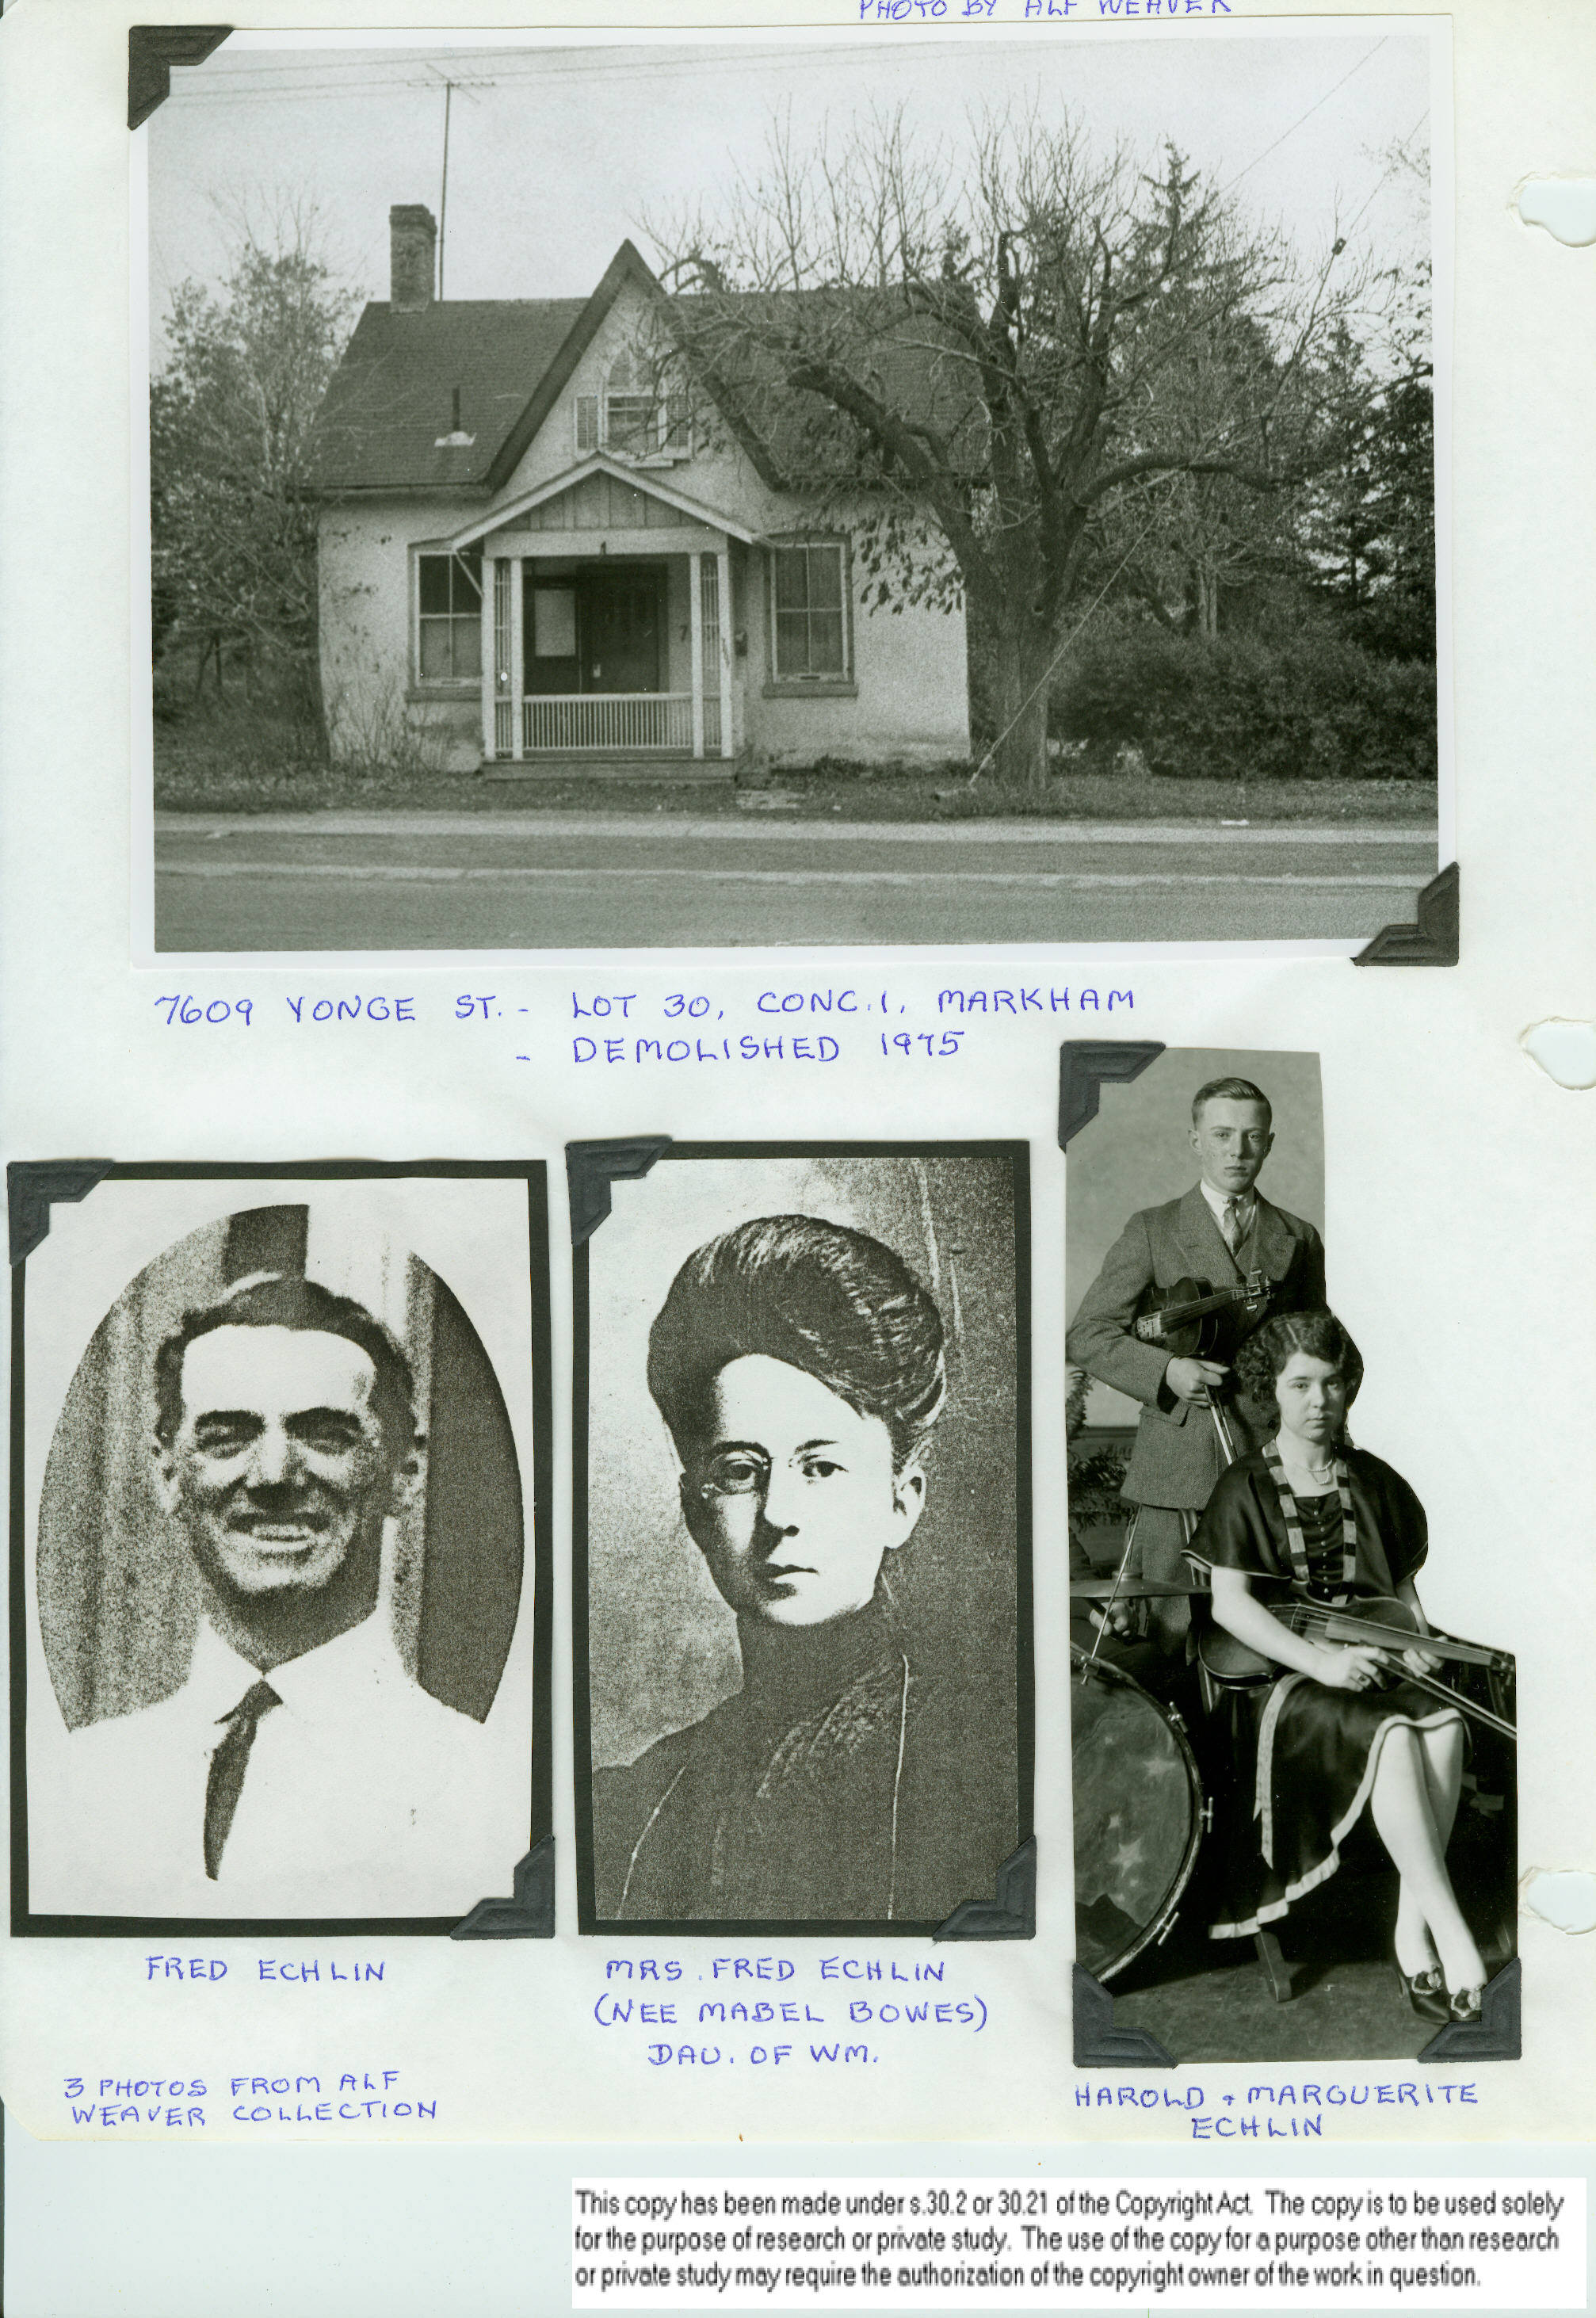 PHOTO BY ALF WEAVER
7
7609 YONGE ST. - LOT 30, CONC. 1, MARKHAM
- DEMOLISHED 1975
FRED ECHLIN
MRS. FRED ECHLIN
(NEE MABEL BOWES)
DAU. OF WM.
3 PHOTOS FROM ALF
WEAVER COLLECTION
HAROLD + MARGUERITE
ECHLIN
This copy has been made under s.30.2 or 30.21 of the Copyright Act. The copy is to be used solely
for the purpose of research or private study. The use of the copy for a purpose other than research
or private study may require the authorization of the copyright owner of the work in question.